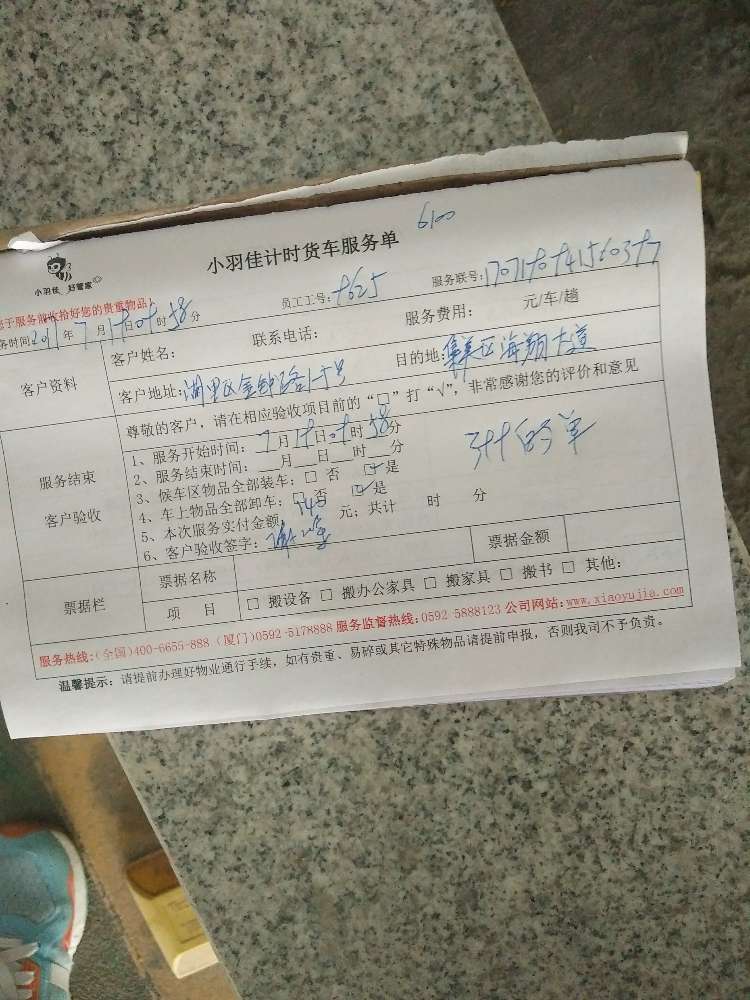 6100
小羽佳计时货车服务单
小羽佳 好管家
于服务前收拾好您的贵重物品)
员工工号:
服务联号:
务时间2017年7月 时58分
客户资料
客户姓名: 联系电话: 服务费用: 元/车/趟
客户地址:湖里区金钟路 号 目的地:集美区海翔大道
服务结束
客户验收
尊敬的客户,请在相应验收项目前的“□”打“√”,非常感谢您的评价和意见
1、服务开始时间:7月 日 时58分
2、服务结束时间:__月__日__时__分
3、候车区物品全部装车:□ 否 ☑是
4、车上物品全部卸车:□ 否 ☑是
5、本次服务实付金额: 元;共计 时 分
6、客户验收签字:
的单
票据栏
票据名称 票据金额
项 目 □ 搬设备 □ 搬办公家具 □ 搬家具 □ 搬书 □ 其他:
服务热线:(全国)400-6655-888 (厦门)0592-5178888 服务监督热线:0592-5888123 公司网站:www.xiaoyujia.com
温馨提示:请提前办理好物业通行手续,如有贵重、易碎或其它特殊物品请提前申报,否则我司不予负责。